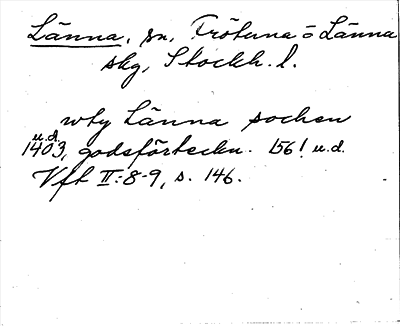 Länna, sn, Frötuna o Länna
skg, Stockh. l.
wty Länna sochen
u.d.
1403, godsförteckn. 156! u.d.
Vft II:8-9, s. 146.